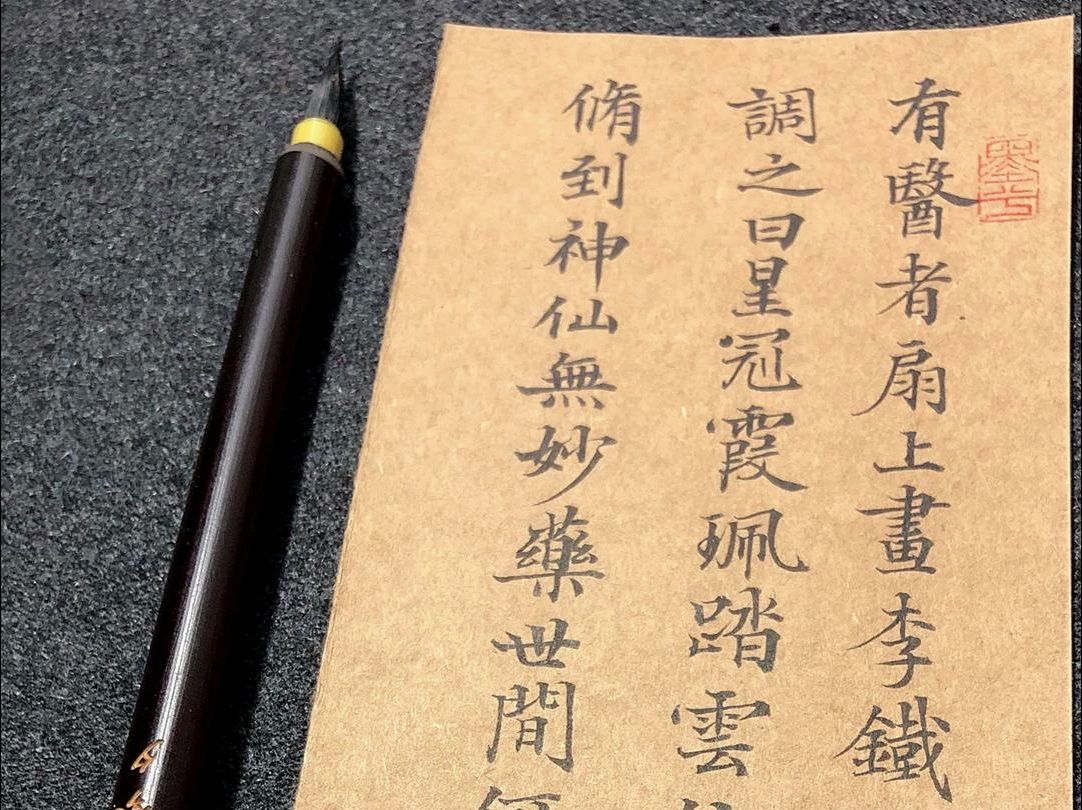 有醫者扇上畫李鐵
調之曰星冠霞珮踏雲
脩到神仙無妙藥世間